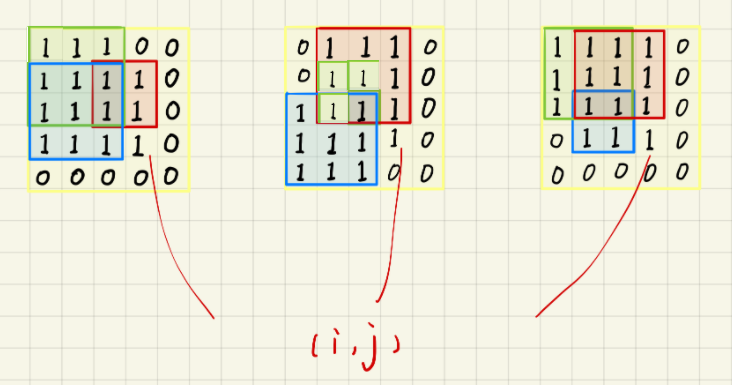 1 1 1 0 0
1 1 1 1 0
1 1 1 1 0
1 1 1 1 0
0 0 0 0 0
0 1 1 1 0
0 1 1 1 0
1 1 1 1 0
1 1 1 1 0
1 1 1 0 0
1 1 1 1 0
1 1 1 1 0
1 1 1 1 0
0 1 1 1 0
0 0 0 0 0
(i,j)